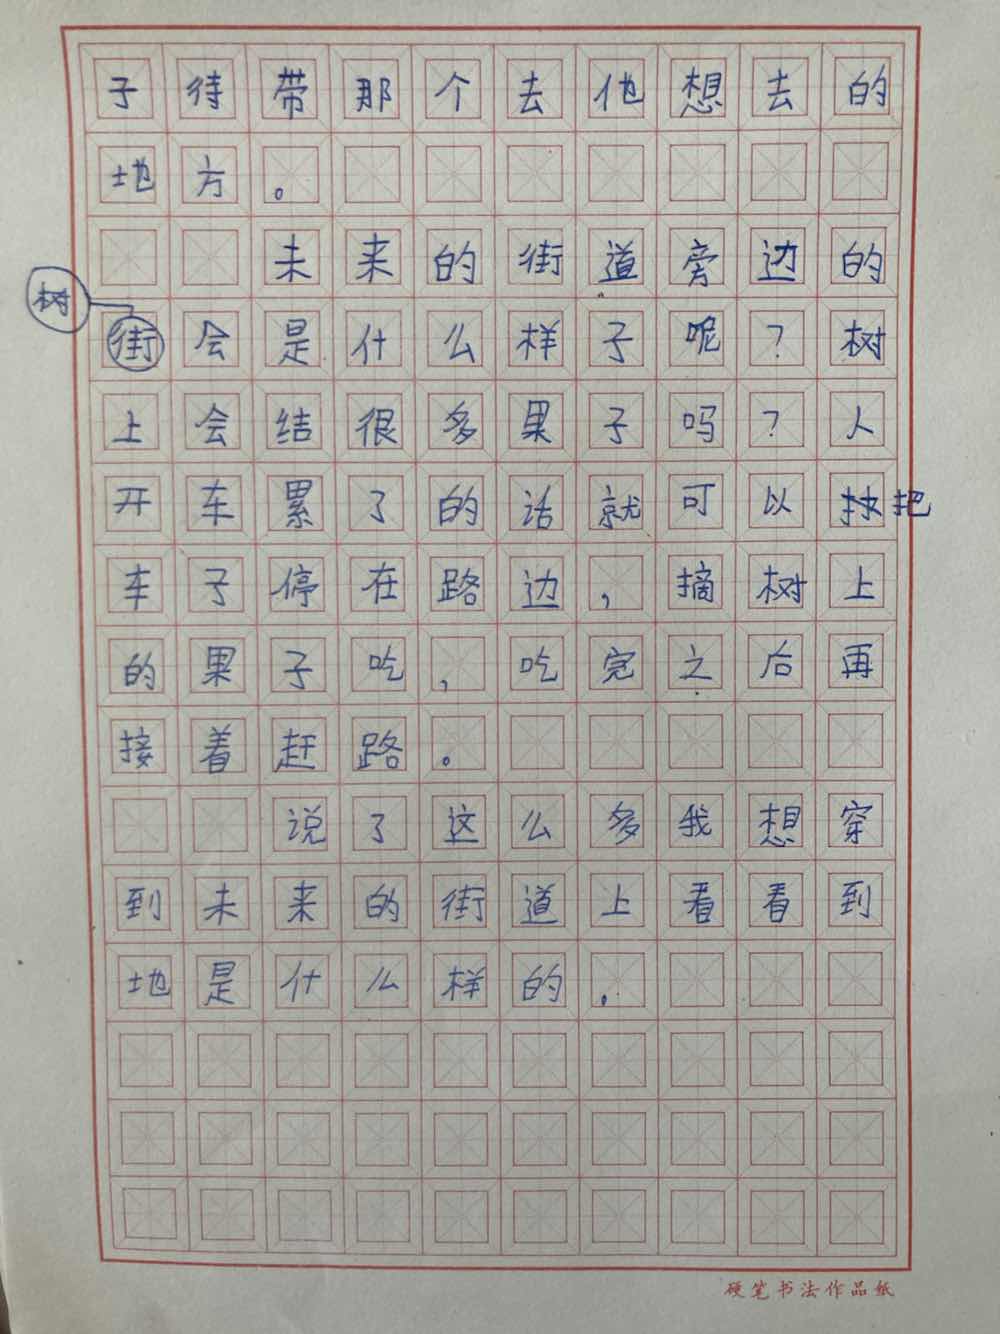 子待带那个去他想去的
地方。
未来的街道旁边的
树
街会是什么样子呢？树
上会结很多果子吗？人
开车累了的话就可以把
车子停在路边，摘树上
的果子吃，吃完之后再
接着赶路。
说了这么多我想穿
到未来的街道上看看到
地是什么样的。
硬笔书法作品纸